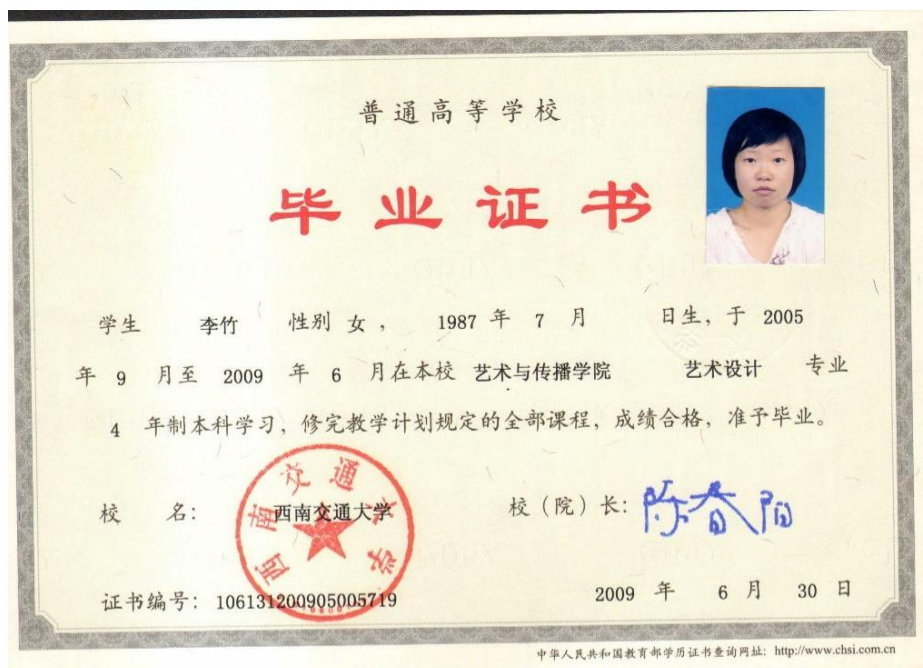 普通高等学校
毕业证书
学生 李竹 性别 女, 1987 年 7 月 日生, 于 2005
年 9 月至 2009 年 6 月在本校 艺术与传播学院 艺术设计 专业
4 年制本科学习, 修完教学计划规定的全部课程, 成绩合格, 准予毕业。
校 名: 西南交通大学 校(院)长: 陈春阳
西南交通大学
证书编号: 106131200905005719 2009 年 6 月 30 日
中华人民共和国教育部学历证书查询网址: http://www.chsi.com.cn